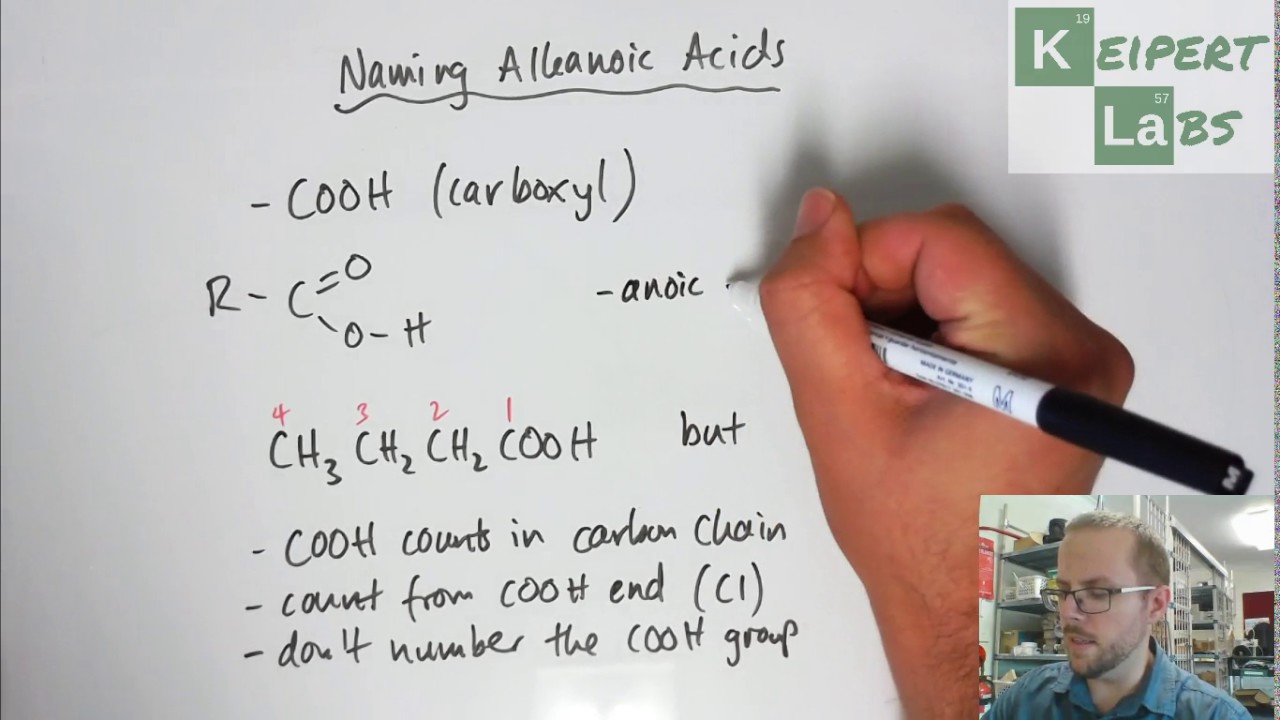 Naming Alkanoic Acids
19
KEIPERT
57
LaBS
- COOH (carboxyl)
R - C = O
O - H
- anoic
4 3 2 1
CH3 CH2 CH2 COOH but
- COOH counts in carbon chain
- count from COOH end (C1)
- don't number the COOH group
MADE IN GERMANY
M